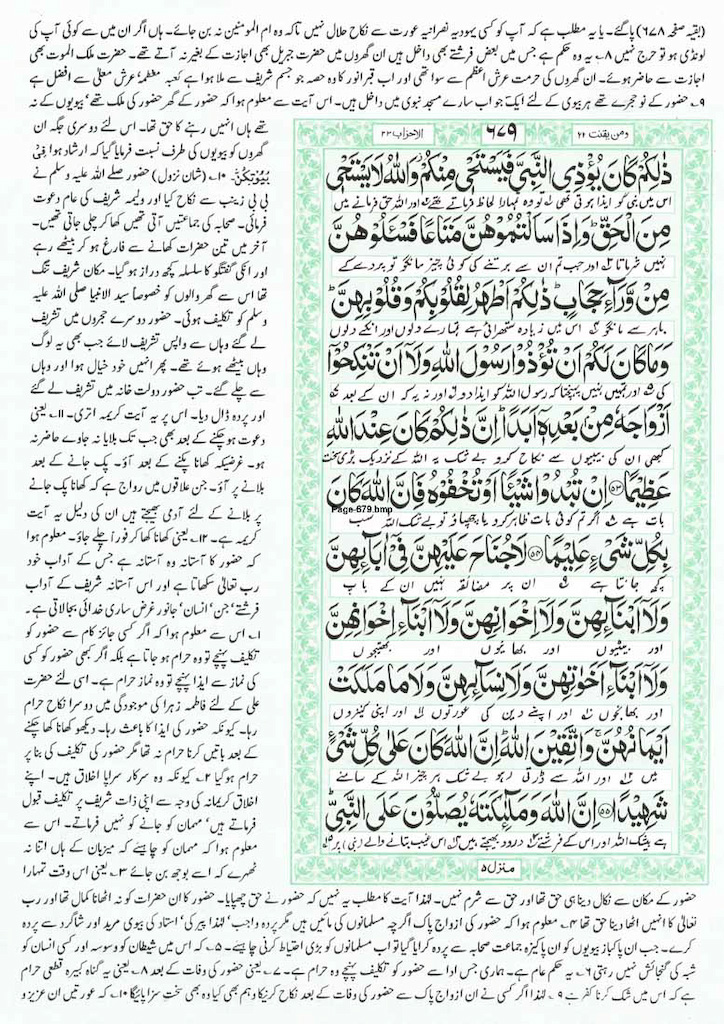 (بقیہ صفحہ ۶۷۸) پا گئے۔ یا یہ مطلب ہے کہ آپ کو کسی یہودیہ نصرانیہ عورت سے نکاح حلال نہیں تاکہ وہ ام المومنین نہ بن جائے۔ ہاں اگر ان میں سے کوئی آپ کی
لونڈی ہو تو حرج نہیں ۸۔ یہ وہ حکم ہے جس میں بعض فرشتے بھی داخل ہیں ان گھروں میں حضرت جبریل بھی اجازت کے بغیر نہ آتے تھے۔ حضرت ملک الموت بھی
اجازت سے حاضر ہوئے۔ ان گھروں کی حرمت عرش اعظم سے سوا تھی اور اب قبر انور کا وہ حصہ جو جسم شریف سے ملا ہوا ہے کعبہ معظمہ' عرش معلی سے افضل ہے
۹۔ حضور کے نو حجرے تھے ہر بیوی کے لئے ایک جو اب سارے مسجد نبوی میں داخل ہیں۔ اس آیت سے معلوم ہوا کہ حضور کے گھر حضور کی ملک تھے' بیویوں کے نہ
تھے ہاں انہیں رہنے کا حق تھا۔ اس لئے دوسری جگہ ان
گھروں کو بیویوں کی طرف نسبت فرمایا گیا کہ ارشاد ہوا فِیْ
بُیُوْتِکُنَّ ۱۰۔ (شان نزول) حضور صلے اللہ علیہ وسلم نے
بی بی زینب سے نکاح کیا اور ولیمہ شریف کی عام دعوت
فرمائی۔ صحابہ کی جماعتیں آتی تھیں کھا کر چلی جاتی تھیں۔
آخر میں تین حضرات کھانے سے فارغ ہو کر بیٹھے رہے
اور انکی گفتگو کا سلسلہ کچھ دراز ہو گیا۔ مکان شریف تنگ
تھا اس سے گھر والوں کو خصوصاً سید الانبیا صلی اللہ علیہ
وسلم کو تکلیف ہوئی۔ حضور دوسرے حجروں میں تشریف
لے گئے وہاں سے واپس تشریف لائے جب بھی یہ لوگ
وہاں بیٹھے ہوئے تھے۔ پھر انہیں خود خیال ہوا اور وہاں
سے چلے گئے۔ تب حضور دولت خانہ میں تشریف لے گئے
اور پردہ ڈال دیا۔ اس پر یہ آیت کریمہ اتری۔ ۱۱۔ یعنی
دعوت ہو چکنے کے بعد بھی جب تک بلایا نہ جاوے حاضر نہ
ہو۔ غرضیکہ کھانا پکنے کے بعد آؤ۔ پک جانے کے بعد
بلانے پر آؤ۔ جن علاقوں میں رواج ہے کہ کھانا پک جانے
پر بلانے کے لئے آدمی بھیجتے ہیں ان کی دلیل یہ آیت
کریمہ ہے۔ ۱۲۔ یعنی کھانا کھا کر فوراً چلے جاؤ۔ معلوم ہوا
کہ حضور کا آستانہ وہ آستانہ ہے جس کے آداب خود
رب تعالٰی سکھاتا ہے اور اس آستانہ شریف کے آداب
فرشتے' جن' انسان' جانور غرض ساری خدائی بجا لاتی ہے۔
۱۔ اس سے معلوم ہوا کہ اگر کسی جائز کام سے حضور کو
تکلیف پہنچے تو وہ حرام ہو جاتا ہے بلکہ اگر کبھی حضور کو کسی
کی نماز سے ایذا پہنچے تو وہ نماز حرام ہے۔ اسی لئے حضرت
علی کے لئے فاطمہ زہرا کی موجودگی میں دوسرا نکاح حرام
رہا۔ کیونکہ حضور کی ایذا کا باعث رہا۔ دیکھو کھانا کھا چکنے
کے بعد باتیں کرنا حرام نہ تھا مگر حضور کی تکلیف کی بنا پر
حرام ہو گیا ۲۔ کیونکہ وہ سرکار سراپا اخلاق ہیں۔ اپنے
اخلاق کریمانہ کی وجہ سے اپنی ذات شریف پر تکلیف قبول
فرماتے ہیں' مہمان کو جانے کو نہیں فرماتے۔ اس سے
معلوم ہوا کہ مہمان کو چاہیئے کہ میزبان کے ہاں اتنا نہ
ٹھہرے کہ اسے بوجھ بن جائے ۳۔ یعنی اس وقت تمہارا
ومن یقنت ۲۲
۶۷۹
الاحزاب ۳۳
ذٰلِكُمْ كَانَ يُؤْذِى النَّبِىَّ فَيَسْتَحْىٖ مِنْكُمْ وَاللّٰهُ لَا يَسْتَحْىٖ
اس میں نبی کو ایذا ہوتی تھی تو وہ تمہارا لحاظ فرماتے تھے اور اللہ حق فرمانے میں
مِنَ الْحَقِّ وَاِذَا سَاَلْتُمُوْهُنَّ مَتَاعًا فَسْـَٔلُوْهُنَّ
نہیں شرماتا اور جب تم ان سے برتنے کی کوئی چیز مانگو تو پردے کے
مِنْ وَّرَآءِ حِجَابٍ ذٰلِكُمْ اَطْهَرُ لِقُلُوْبِكُمْ وَقُلُوْبِهِنَّ
باہر سے مانگو اس میں زیادہ ستھرائی ہے تمہارے دلوں اور انکے دلوں
وَمَا كَانَ لَكُمْ اَنْ تُؤْذُوْا رَسُوْلَ اللّٰهِ وَلَآ اَنْ تَنْكِحُوْٓا
کی اور تمہیں نہیں پہنچتا کہ رسول اللہ کو ایذا دو اور نہ یہ کہ ان کے بعد
اَزْوَاجَهٗ مِنْ بَعْدِهٖٓ اَبَدًا اِنَّ ذٰلِكُمْ كَانَ عِنْدَ اللّٰهِ
کبھی ان کی بیبیوں سے نکاح کرو بے شک یہ اللہ کے نزدیک بڑی سخت
عَظِيْمًا ۵۳ اِنْ تُبْدُوْا شَيْـًٔا اَوْ تُخْفُوْهُ فَاِنَّ اللّٰهَ كَانَ
Page-679.bmp
بات ہے اگر تم کوئی بات ظاہر کرو یا چھپاؤ تو بے شک اللہ سب
بِكُلِّ شَىْءٍ عَلِيْمًا ۵۴ لَا جُنَاحَ عَلَيْهِنَّ فِىْٓ اٰبَآئِهِنَّ
کچھ جانتا ہے ان پر مضائقہ نہیں ان کے باپ
وَلَآ اَبْنَآئِهِنَّ وَلَآ اِخْوَانِهِنَّ وَلَآ اَبْنَآءِ اِخْوَانِهِنَّ
اور بیٹوں اور بھائیوں اور بھتیجوں
وَلَآ اَبْنَآءِ اَخَوٰتِهِنَّ وَلَا نِسَآئِهِنَّ وَلَا مَا مَلَكَتْ
اور بھانجوں اور اپنے دین کی عورتوں اور اپنی کنیزوں
اَيْمَانُهُنَّ وَاتَّقِيْنَ اللّٰهَ اِنَّ اللّٰهَ كَانَ عَلٰى كُلِّ شَىْءٍ
میں اور اللہ سے ڈرتی رہو بے شک ہر چیز اللہ کے سامنے
شَهِيْدًا ۵۵ اِنَّ اللّٰهَ وَمَلٰٓئِكَتَهٗ يُصَلُّوْنَ عَلَى النَّبِىِّ
ہے بیشک اللہ اور اس کے فرشتے درود بھیجتے ہیں اس غیب بتانے والے (نبی) پر
منزل ۵
حضور کے مکان سے نکال دینا ہی حق تھا اور حق سے شرم نہیں۔ لہٰذا آیت کا مطلب یہ نہیں کہ حضور نے حق چھپایا۔ حضور کا ان حضرات کو نہ اٹھانا کمال تھا اور رب
تعالٰی کا انہیں اٹھا دینا حق تھا ۴۔ معلوم ہوا کہ حضور کی ازواج پاک اگرچہ مسلمانوں کی مائیں ہیں مگر پردہ واجب' لہٰذا پیر کی' استاد کی بیوی مرید اور شاگرد سے پردہ
کرے۔ جب ان پاکباز بیویوں کو ان پاکیزہ جماعت صحابہ سے پردہ کرایا گیا تو اب مسلمانوں کو بڑی احتیاط کرنی چاہیئے۔ ۵۔ کہ اس میں شیطان کو وسوسہ اور کسی انسان کو
شبہ کی گنجائش نہیں رہتی ۶۔ یہ حکم عام ہے۔ ہماری جس ادا سے حضور کو تکلیف پہنچے وہ حرام ہے۔ ۷۔ یعنی حضور کی وفات کے بعد ۸۔ یعنی یہ گناہ کبیرہ قطعی حرام
ہے کہ اس میں شک کرنا کفر ہے ۹۔ لہٰذا اگر کسی نے ان ازواج پاک سے حضور کی وفات کے بعد نکاح کرنیکا وہم بھی کیا وہ بھی سخت سزا پائیگا ۱۰۔ کہ عورتیں ان عزیز و